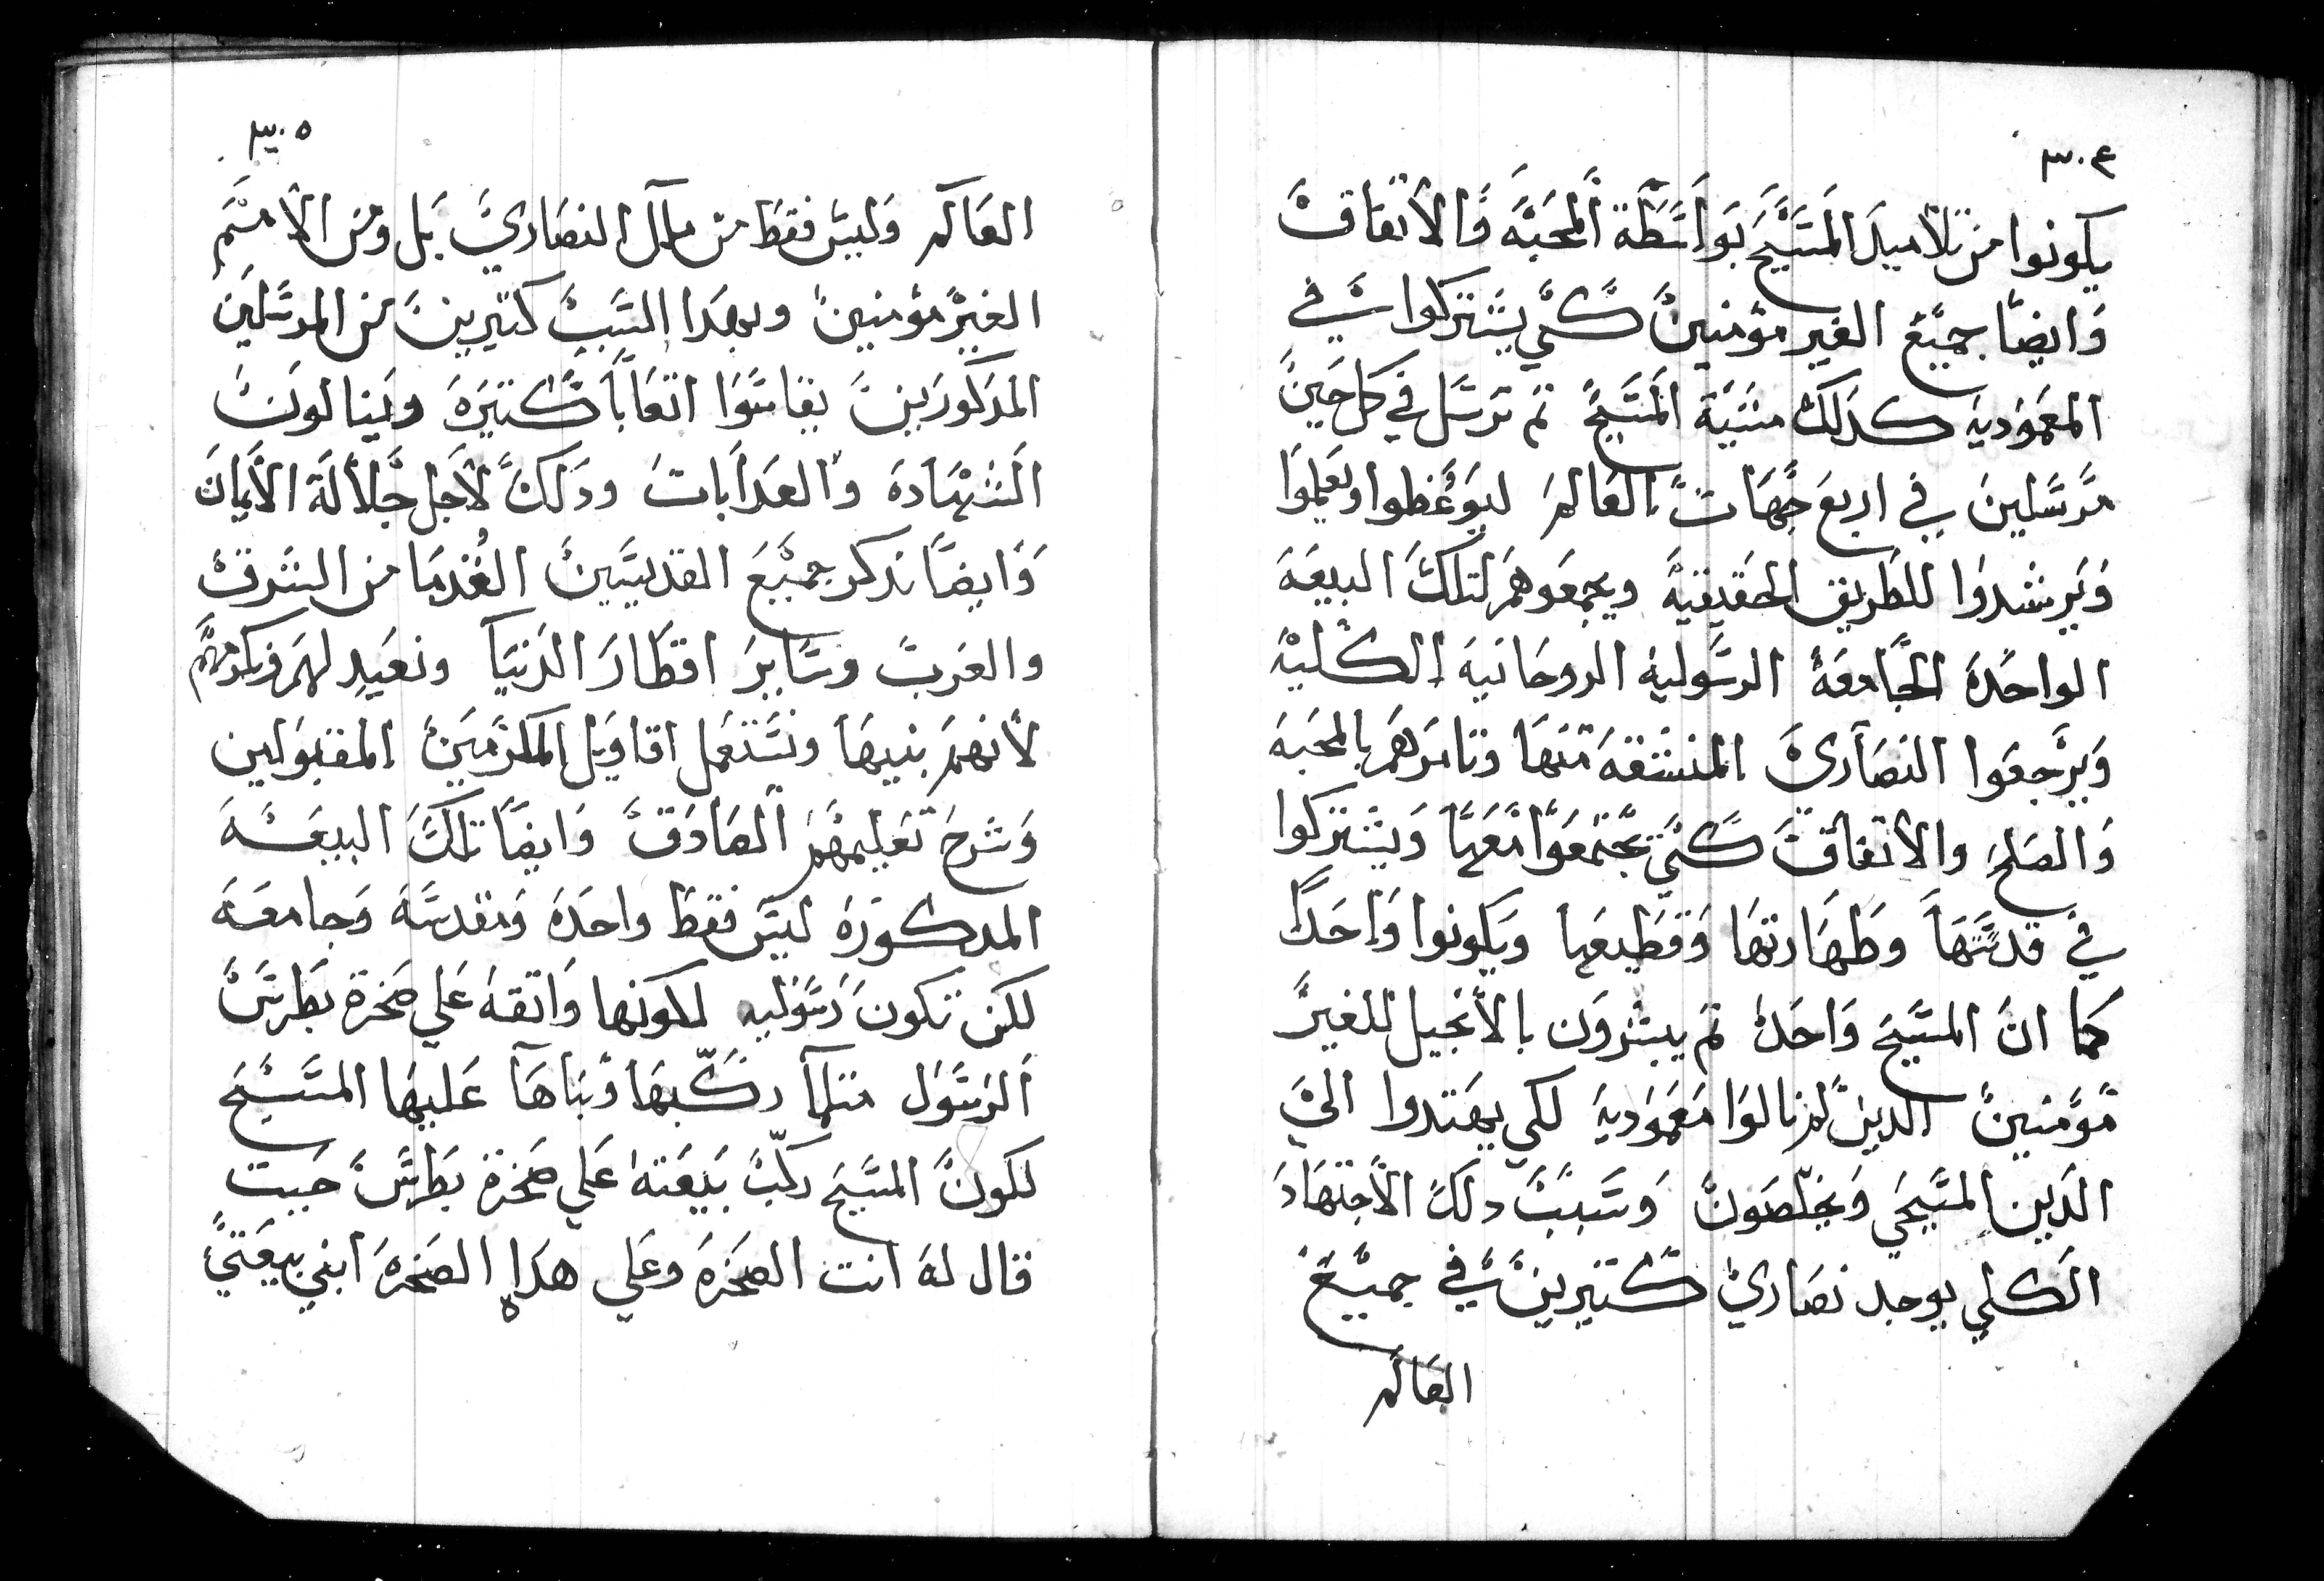 ٣٠٤
يكونوا من تلاميد المسيح بواسطة المحبه والاتفاق
وايضا جميع الغير مؤمنين كي يشتركوا في
المعموديه كدلك مشية المسيح تم ترسل في كل حين
مرسلين في اربع جهات العالم ليوعظوا ويعلموا
ويرشدوا للطريق الحقيقية ويجمعوهم لتلك البيعه
الواحده الجامعه الرسوليه الروحانيه الكليه
ويرجعوا النصاري المنشقه منها وتامرهم بالمحبه
والصلح والاتفاق كي يجتمعوا معها ويشتركوا
في قدستها وطهارتها وقطيعها ويكونوا واحدا
كما ان المسيح واحد تم يبشرون بالانجيل للغير
مؤمنين الدين لم نالوا معموديه لكي يهتدوا الي
الدين المسيحي ويخلصون وسبب دلك الاجتهاد
الكلي يوجد نصاري كتيرين في جميع
العالم
٣٠٥
العالم وليس فقط من ملل النصاري بل ومن الامم
الغير مؤمنين وبهدا السبب كتيرين من المرسلين
المدكورين يقاسوا اتعابا كتيره وينالون
الشهاده والعدابات ودلك لاجل جلالة الايمان
وايضا ندكر جميع القديسين القدما من الشرق
والغرب وساير اقطار الدنيا ونعيد لهم ونكرمهم
لانهم بنيها ونستعمل اقاويل المكرمين المقبولين
وشرح تعليمهم الصادق وايضا تلك البيعه
المدكوره ليس فقط واحده ومقدسه وجامعه
لكن تكون رسوليه لكونها واتقه علي صخرة بطرس
الرسول متلما ركبها وبناها عليها المسيح
لكون المسيح ركب بيعته علي صخرة بطرس حيت
قال له انت الصخره وعلي هده الصخره ابني بيعتي